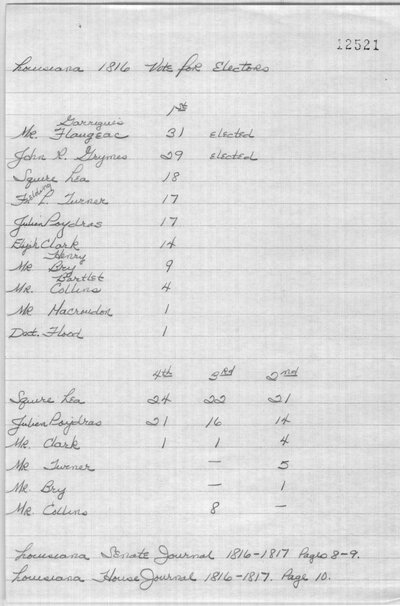 12521
Louisiana 1816 Vote for Electors
1st
Garrigues
Mr. Flaugeac 31 elected
John R. Grymes 29 elected
Squire Lea 18
Fielding
F. L. Turner 17
Julien Poydras 17
Elijh Clark 14
Henry
Mr Bry 9
Bartlet
Mr. Collins 4
Mr Macroudon 1
Doct. Flood 1
4th 3rd 2nd
Squire Lea 24 22 21
Julien Poydras 21 16 14
Mr. Clark 1 1 4
Mr Turner — 5
Mr. Bry — 1
Mr. Collins 8 —
Louisiana Senate Journal 1816-1817 Pages 8-9.
Louisiana House Journal 1816-1817. Page 10.